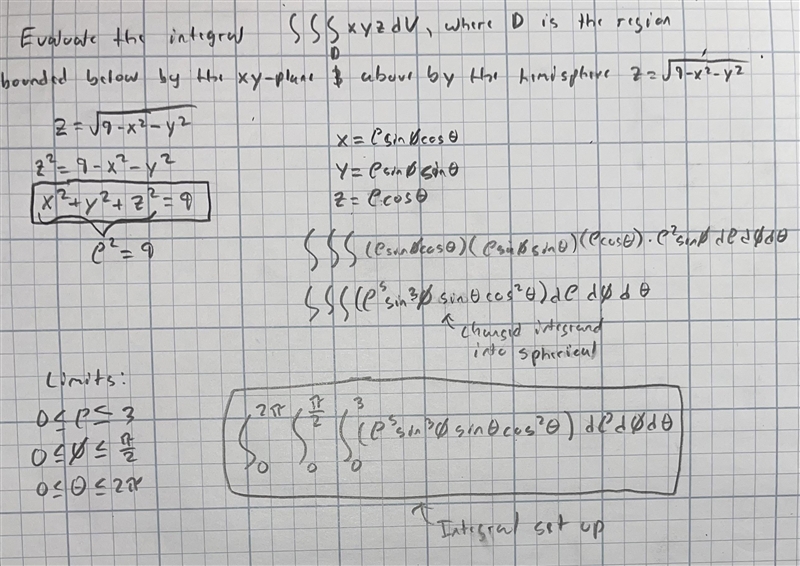 Evaluate the integral ∫∫∫_D xyz dV, where D is the region
bounded below by the xy-plane & above by the hemisphere z=√(9-x²-y²).
z=√(9-x²-y²)
z²=9-x²-y²
x²+y²+z²=9
ρ²=9
x=ρsinϕcosθ
y=ρsinϕsinθ
z=ρcosθ
∫∫∫(ρsinϕcosθ)(ρsinϕsinθ)(ρcosθ)·ρ²sinϕ dρdϕdθ
∫∫∫(ρ⁵sin³ϕ sinθcos²θ)dρ dϕ dθ
↑ changed integrand
into spherical
Limits:
0≤ρ≤3
0≤ϕ≤π/2
0≤θ≤2π
∫_0^{2π} ∫_0^{π/2} ∫_0^3 (ρ⁵sin³ϕ sinθcos²θ) dρdϕdθ
↑ Integral set up